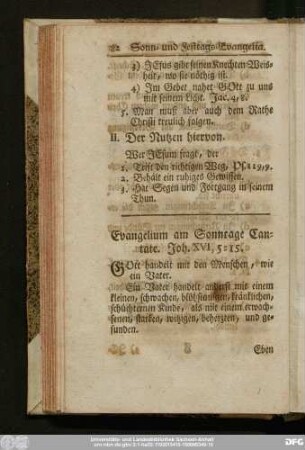 82 Sonn- und Festtags-Evangelia.
3) JEsus gibt seinen Knechten Weis-
heit, wo sie nöthig ist.
4) Im Gebet nahet GOtt zu uns
mit seinem Licht. Jac. 4, 8.
5. Man muß aber auch dem Rathe
Christi treulich folgen.
II. Der Nutzen hiervon.
Wer JEsum fragt, der
1. Trifft den richtigen Weg. Ps. 119, 9.
2. Behält ein ruhiges Gewissen.
3. Hat Segen und Fortgang in seinem
Thun.
Evangelium am Sonntage Can-
tate. Joh. XVI, 5-15.
GOtt handelt mit den Menschen, wie
ein Vater.
Ein Vater handelt anders mit einem
kleinen, schwachen, blödsinnigen, kräncklichen,
schüchternen Kinde, als mit einem erwach-
senen, starken, witzigen, beherzten, und ge-
sunden.
Eben
Universitäts- und Landesbibliothek Sachsen-Anhalt
DFG